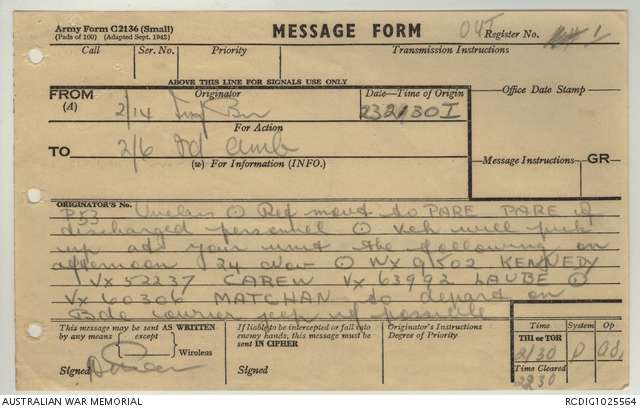 Army Form C2136 (Small)
(Pads of 100) (Adapted Sept. 1942)
MESSAGE FORM
OUT
Register No. 1
Call
Ser. No.
Priority
Transmission Instructions
ABOVE THIS LINE FOR SIGNALS USE ONLY
FROM
(A)
Originator
Date—Time of Origin
Office Date Stamp —
2/14
232130I
For Action
TO
2/6 Fd Amb
(w) For Information (INFO.)
Message Instructions
GR
ORIGINATOR'S No.
P53 Unclas ⊙ Ref movt to PARE PARE of
discharged personnel ⊙ Veh will pick
up at your unit the following on
afternoon 24 Nov ⊙ NX 91502 KENNEDY
VX 52237 CAREW VX 63992 LAUBE ⊙
VX 60306 MATCHAN to depart on
Bde courier jeep if possible
This message may be sent AS WRITTEN
by any means { except } Wireless
Signed
If liable to be intercepted or fall into
enemy hands, this message must be
sent IN CIPHER
Signed
Originator's Instructions
Degree of Priority
Time
System
Op
THI or TOR
2130
D
Time Cleared
2230
AUSTRALIAN WAR MEMORIAL
RCDIG1025564